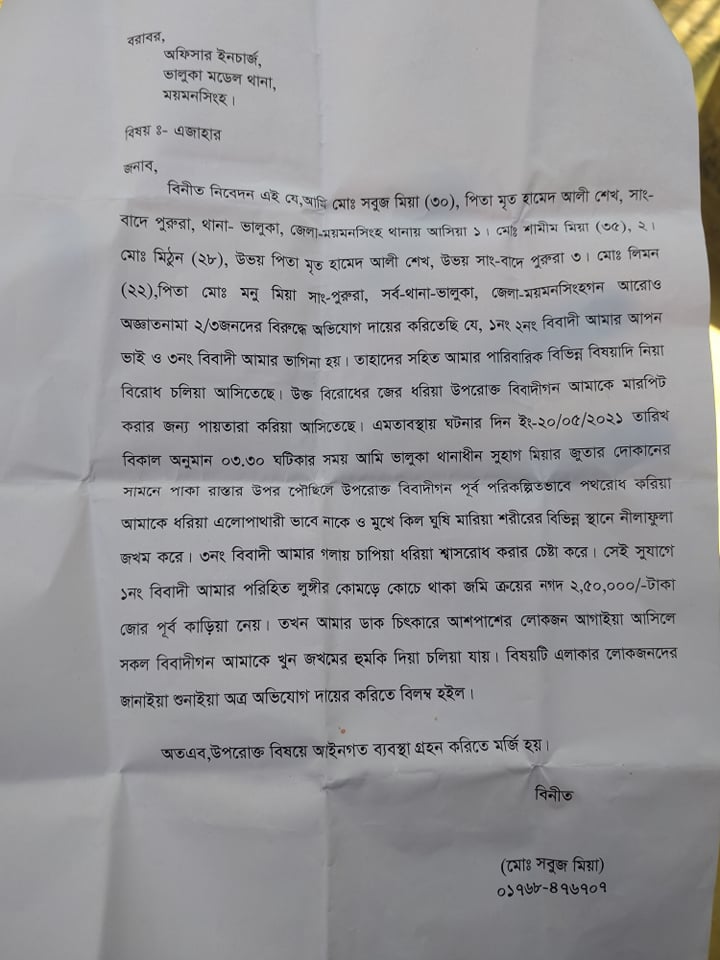 বরাবর,
অফিসার ইনচার্জ,
ভালুকা মডেল থানা,
ময়মনসিংহ।
বিষয় ঃ- এজাহার
জনাব,
বিনীত নিবেদন এই যে,আমি মোঃ সবুজ মিয়া (৩০), পিতা মৃত হামেদ আলী শেখ, সাং-
বাদে পুরুরা, থানা- ভালুকা, জেলা-ময়মনসিংহ থানায় আসিয়া ১। মোঃ শামীম মিয়া (৩৫), ২।
মোঃ মিঠুন (২৮), উভয় পিতা মৃত হামেদ আলী শেখ, উভয় সাং-বাদে পুরুরা ৩। মোঃ লিমন
(২২),পিতা মোঃ মনু মিয়া সাং-পুরুরা, সর্ব-থানা-ভালুকা, জেলা-ময়মনসিংহগন আরোও
অজ্ঞাতনামা ২/৩জনদের বিরুদ্ধে অভিযোগ দায়ের করিতেছি যে, ১নং ২নং বিবাদী আমার আপন
ভাই ও ৩নং বিবাদী আমার ভাগিনা হয়। তাহাদের সহিত আমার পারিবারিক বিভিন্ন বিষয়াদি নিয়া
বিরোধ চলিয়া আসিতেছে। উক্ত বিরোধের জের ধরিয়া উপরোক্ত বিবাদীগন আমাকে মারপিট
করার জন্য পায়তারা করিয়া আসিতেছে। এমতাবস্থায় ঘটনার দিন ইং-২০/০৫/২০২১ তারিখ
বিকাল অনুমান ০৩.৩০ ঘটিকার সময় আমি ভালুকা থানাধীন সুহাগ মিয়ার জুতার দোকানের
সামনে পাকা রাস্তার উপর পৌছিলে উপরোক্ত বিবাদীগন পূর্ব পরিকল্পিতভাবে পথরোধ করিয়া
আমাকে ধরিয়া এলোপাথারী ভাবে নাকে ও মুখে কিল ঘুষি মারিয়া শরীরের বিভিন্ন স্থানে নীলাফুলা
জখম করে। ৩নং বিবাদী আমার গলায় চাপিয়া ধরিয়া শ্বাসরোধ করার চেষ্টা করে। সেই সুযাগে
১নং বিবাদী আমার পরিহিত লুঙ্গীর কোমড়ে কোচে থাকা জমি ক্রয়ের নগদ ২,৫০,০০০/-টাকা
জোর পূর্ব কাড়িয়া নেয়। তখন আমার ডাক চিৎকারে আশপাশের লোকজন আগাইয়া আসিলে
সকল বিবাদীগন আমাকে খুন জখমের হুমকি দিয়া চলিয়া যায়। বিষয়টি এলাকার লোকজনদের
জানাইয়া শুনাইয়া অত্র অভিযোগ দায়ের করিতে বিলম্ব হইল।
অতএব,উপরোক্ত বিষয়ে আইনগত ব্যবস্থা গ্রহন করিতে মর্জি হয়।
বিনীত
(মোঃ সবুজ মিয়া)
০১৭৬৮-৪৭৬৭০৭